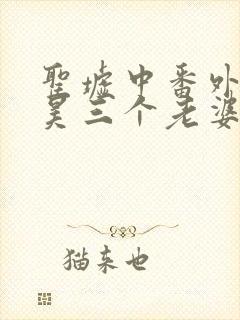 聖墟中番外
昊三个老婆
猫来也